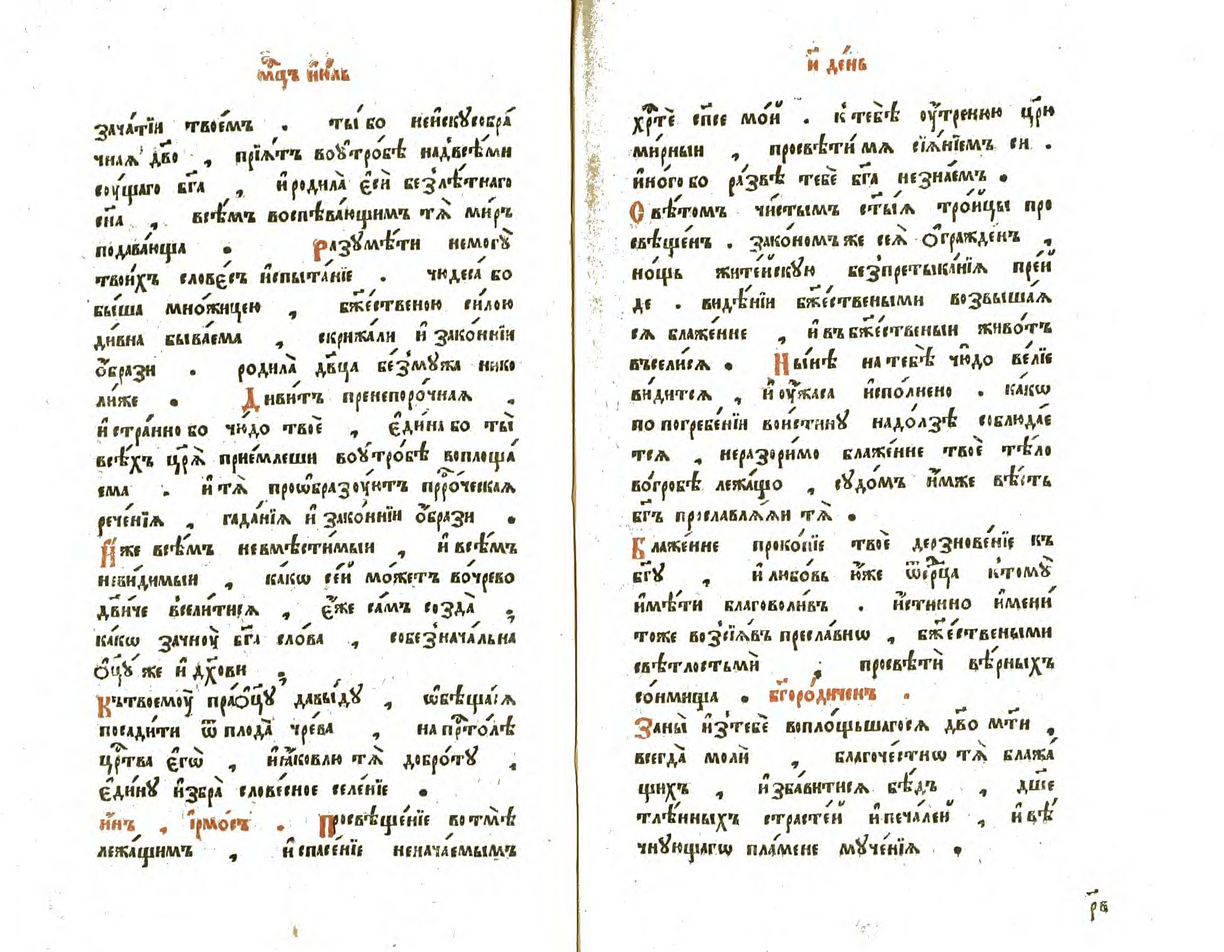 мⷭ҇цъ и҆ю́ль
зача́тїи твое́мъ . ты́ бо неи҆скꙋсобра́
чнаѧ дв҃о , прїѧ́тъ воᲂу҆тро́бѣ надвсѣ́ми
сꙋ́щаго бг҃а , и҆родила̀ є҆сѝ безлѣ́тнаго
сн҃а , всѣ́мъ воспѣва́ющимъ тѧ̀ ми́ръ
подава́юща . Разꙋмѣ́ти немогꙋ̀
твои́хъ слове́съ и҆спыта́нїе . чюдеса́ бо
бы́ша мно́жицею , бж҃е́ственою си́лою
ди́вна быва́ема , скрижа́ли и҆ зако́ннїи
ѻ҆́брази . родила̀ дв҃ца безмꙋ́жа нико
ли́же . Диви́тъ пренепоро́чнаѧ .
и҆ стра́нно бо чю́до твоѐ , є҆ди́на бо ты̀
всѣ́хъ цр҃ѧ̀ прие́млеши воᲂу҆тро́бѣ воплоща́
ема . и҆ тѧ̀ проѡбразꙋ́итъ прⷪ҇ро́ческаѧ
рече́нїѧ , гада́нїѧ и҆ зако́ннїи ѻ҆́брази .
И҆́же всѣ́мъ невмѣсти́мыи , и҆ всѣ́мъ
неви́димыи , ка́кѡ се́й мо́жетъ во́чрево
дв҃и́че всели́тисѧ , є҆́же са́мъ созда̀ ;
ка́кѡ зачноу̀ бг҃а сло́ва , собезнача́льна
ѻ҆ц҃ꙋ́ же и҆ дх҃ови ;
Къ́твоемоу̀ пра́ѻц҃ꙋ давы́дꙋ , ѡ҆бѣща́сѧ
посади́ти ѿ плода̀ чре́ва , на прⷭ҇то́лѣ
црⷭ҇тва є҆гѡ̀ , и҆ꙗ́ковлю тѧ̀ добро́тꙋ .
є҆ди́нꙋ и҆збра̀ слове́сное селе́нїе .
и҆́нъ , і҆рмо́съ . Просвѣще́нїе во тмѣ̀
лежа́щимъ , и҆ спасе́нїе неначаемымъ
и҃ де́нь
хрⷭ҇тѐ сп҃се мо́й . к тебѣ̀ ᲂу҆́тренюю цр҃ю
ми́рныи , просвѣти́ мѧ сїѧ́нїемъ си .
и҆но́го бо ра́звѣ тебѐ бг҃а незна́емъ .
Свѣ́томъ чи́стымъ ст҃ы́ѧ тро́ицы про
свѣще́нъ . зако́номъ же сеѧ̀ ѻ҆гражде́нъ ,
но́щь жите́йскꙋю безпретыка́нїѧ пре́и
де . видѣ́нїи бж҃е́ствеными возвыша́ѧ
сѧ блаже́нне , и҆ въ бж҃е́ственыи живо́тъ
въсели́сѧ . Ны́нѣ на тебѣ̀ чю́до ве́лїе
ви́дитсѧ , и҆ ᲂу҆́жаса и҆спо́лнено . ка́кѡ
по погребе́нїи вои́стинꙋ надо́лзѣ соблюда́е
тсѧ , неразори́мо блаже́нне твоѐ тѣ́ло
во́гробѣ лежа́що , сꙋдо́мъ и҆́мже вѣ́сть
бг҃ъ просла́влѧѧи тѧ̀ .
Блаже́нне проко́пїе твоѐ дерзнове́нїе къ
бг҃ꙋ , и҆ любо́вь ю҆́же ѿсрⷣца к томꙋ̀
и҆мѣ́ти благоволи́въ . и҆́стинно и҆мени́
тоже возсїѧ́въ пресла́внѡ , бж҃е́ствеными
свѣ́тлостьмѝ , просвѣтѝ вѣ́рныхъ
со́нмища . бг҃оро́диченъ .
Заны̀ и҆з̾тебѐ вопло́щьшагосѧ дв҃о мт҃и ,
всегда̀ молѝ , благоче́стнѡ тѧ̀ блажа́
щихъ , и҆зба́витисѧ бѣ́дъ , дш҃е
тлѣ́нныхъ страсте́й и҆ печа́лей , и҆ вѣ́
чнꙋющагѡ пла́мене мꙋче́нїѧ .